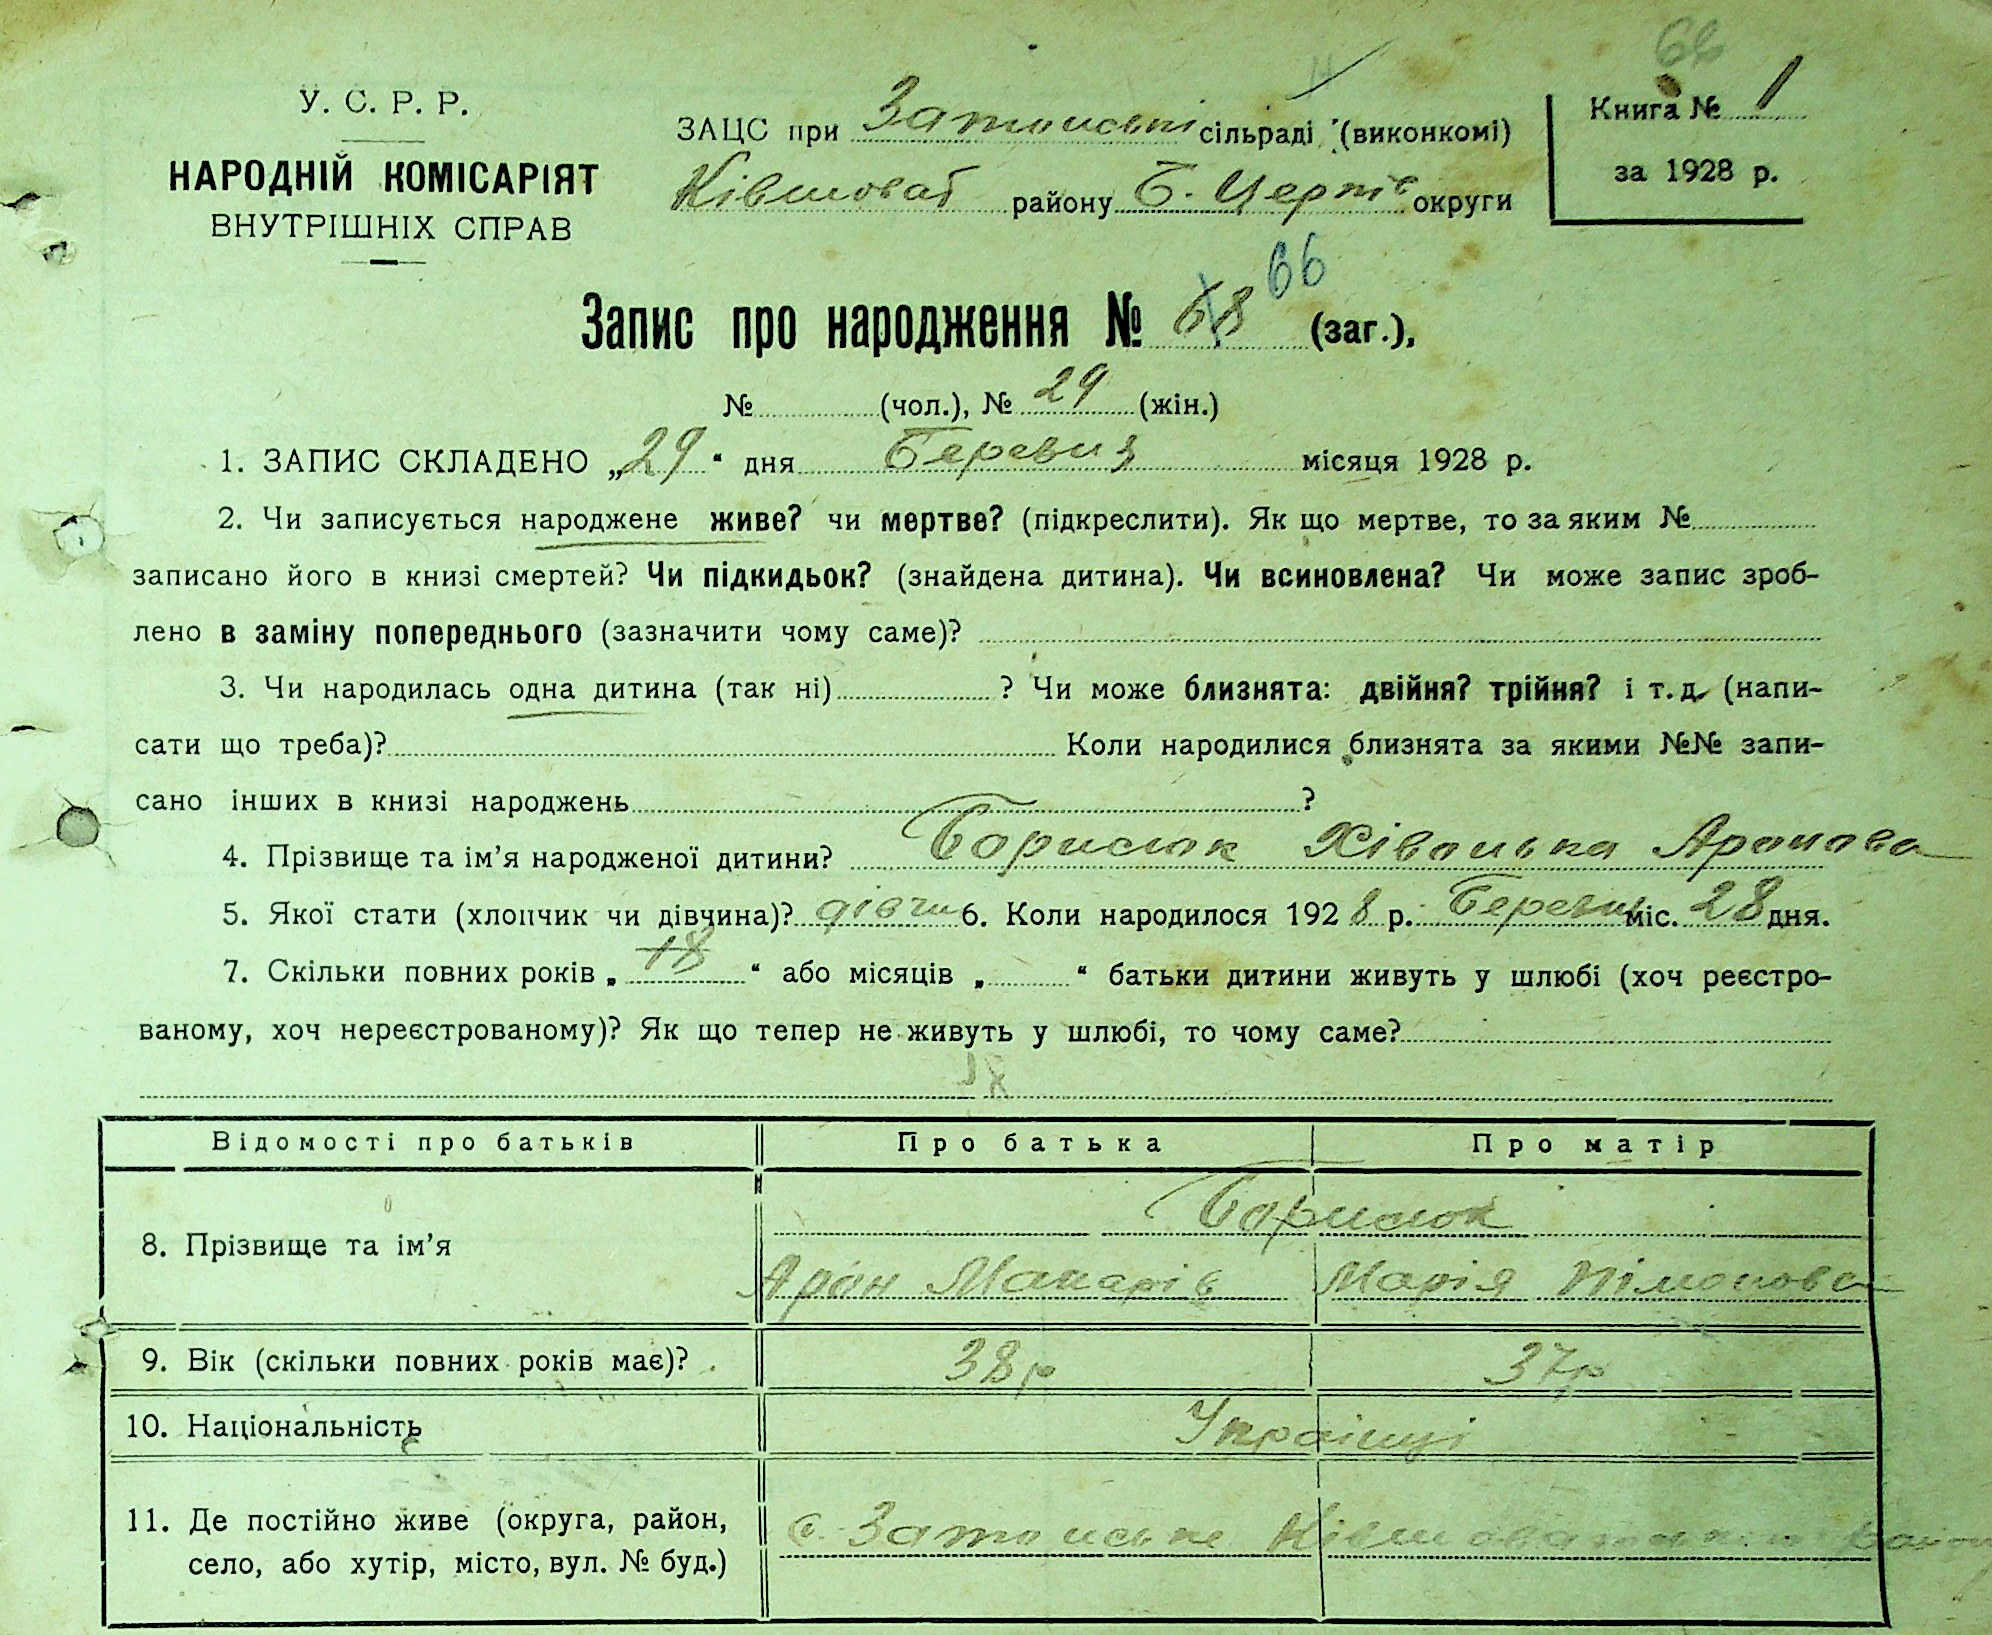 66
У. С. Р. Р.
НАРОДНІЙ КОМІСАРІЯТ
ВНУТРІШНІХ СПРАВ
ЗАЦС при сільраді (виконкомі)
Ківшоват району Б. Церків округи
Книга № 1
за 1928 р.
66
Запис про народження № 68 (заг.),
№ (чол.), № 29 (жін.)
1. ЗАПИС СКЛАДЕНО „29“ дня Березня місяця 1928 р.
2. Чи записується народжене живе? чи мертве? (підкреслити). Як що мертве, то за яким №
записано його в книзі смертей? Чи підкидьок? (знайдена дитина). Чи всиновлена? Чи може запис зроб-
лено в заміну попереднього (зазначити чому саме)?
3. Чи народилась одна дитина (так ні) ? Чи може близнята: двійня? трійня? і т. д. (напи-
сати що треба)? Коли народилися близнята за якими №№ запи-
сано інших в книзі народжень ?
4. Прізвище та ім’я народженої дитини? Борисюк Аронова
5. Якої стати (хлопчик чи дівчина)? дівчи 6. Коли народилося 1928 р. Березня міс. 28 дня.
7. Скільки повних років „ 18 “ або місяців „ “ батьки дитини живуть у шлюбі (хоч реєстро-
ваному, хоч нереєстрованому)? Як що тепер не живуть у шлюбі, то чому саме?
Відомості про батьків Про батька Про матір
8. Прізвище та ім’я Борисюк
Арон Макарів Марія
9. Вік (скільки повних років має)? 38р 37р
10. Національність Українці
11. Де постійно живе (округа, район,
село, або хутір, місто, вул. № буд.)
с.